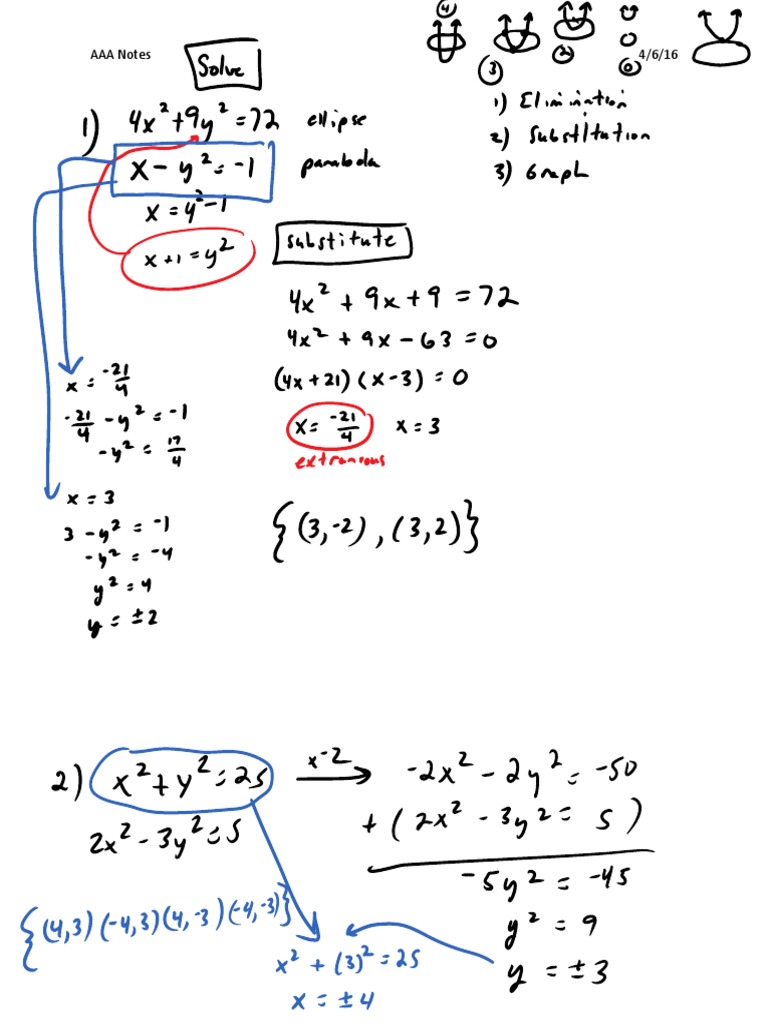 AAA Notes
4/6/16
Solve
4
3
2
0
1) Elimination
2) Substitution
3) Graph
1) 4x²+9y²=72 ellipse
x-y²=-1 parabola
x=y²-1
x+1=y²
substitute
4x²+9x+9=72
4x²+9x-63=0
(4x+21)(x-3)=0
x=-21/4 x=3
extraneous
{(3,-2),(3,2)}
x=-21/4
-21/4-y²=-1
-y²=17/4
x=3
3-y²=-1
-y²=-4
y²=4
y=±2
2) x²+y²=25
2x²-3y²=5
x-2
-2x²-2y²=-50
+(2x²-3y²=5)
-5y²=-45
y²=9
y=±3
x²+(3)²=25
x=±4
{(4,3)(-4,3)(4,-3)(-4,-3)}